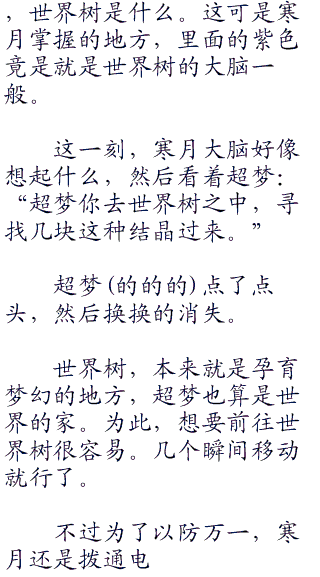 ，世界树是什么。这可是寒
月掌握的地方，里面的紫色
竟是就是世界树的大脑一
般。
这一刻，寒月大脑好像
想起什么，然后看着超梦：
“超梦你去世界树之中，寻
找几块这种结晶过来。”
超梦(的的的)点了点
头，然后换换的消失。
世界树，本来就是孕育
梦幻的地方，超梦也算是世
界的家。为此，想要前往世
界树很容易。几个瞬间移动
就行了。
不过为了以防万一，寒
月还是拨通电